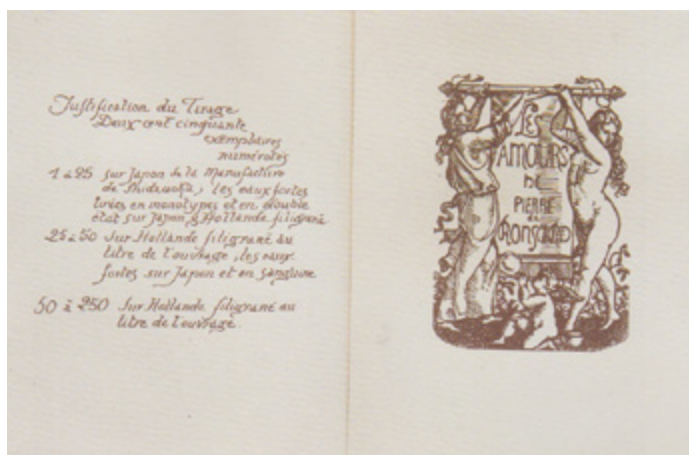 Justification du Tirage
Deux cent cinquante
exemplaires
numérotés
1 à 25 sur Japon de la Manufacture
de Shidzuoka, les eaux fortes
tirées en monotypes et en double
état sur Japon & Hollande filigrané
25 à 50 Sur Hollande filigrané au
titre de l'ouvrage, les eaux
fortes sur Japon et en sanguine
50 à 250 Sur Hollande filigrané au
titre de l'ouvrage.
LES
AMOURS
DE
PIERRE
de
RONSARD